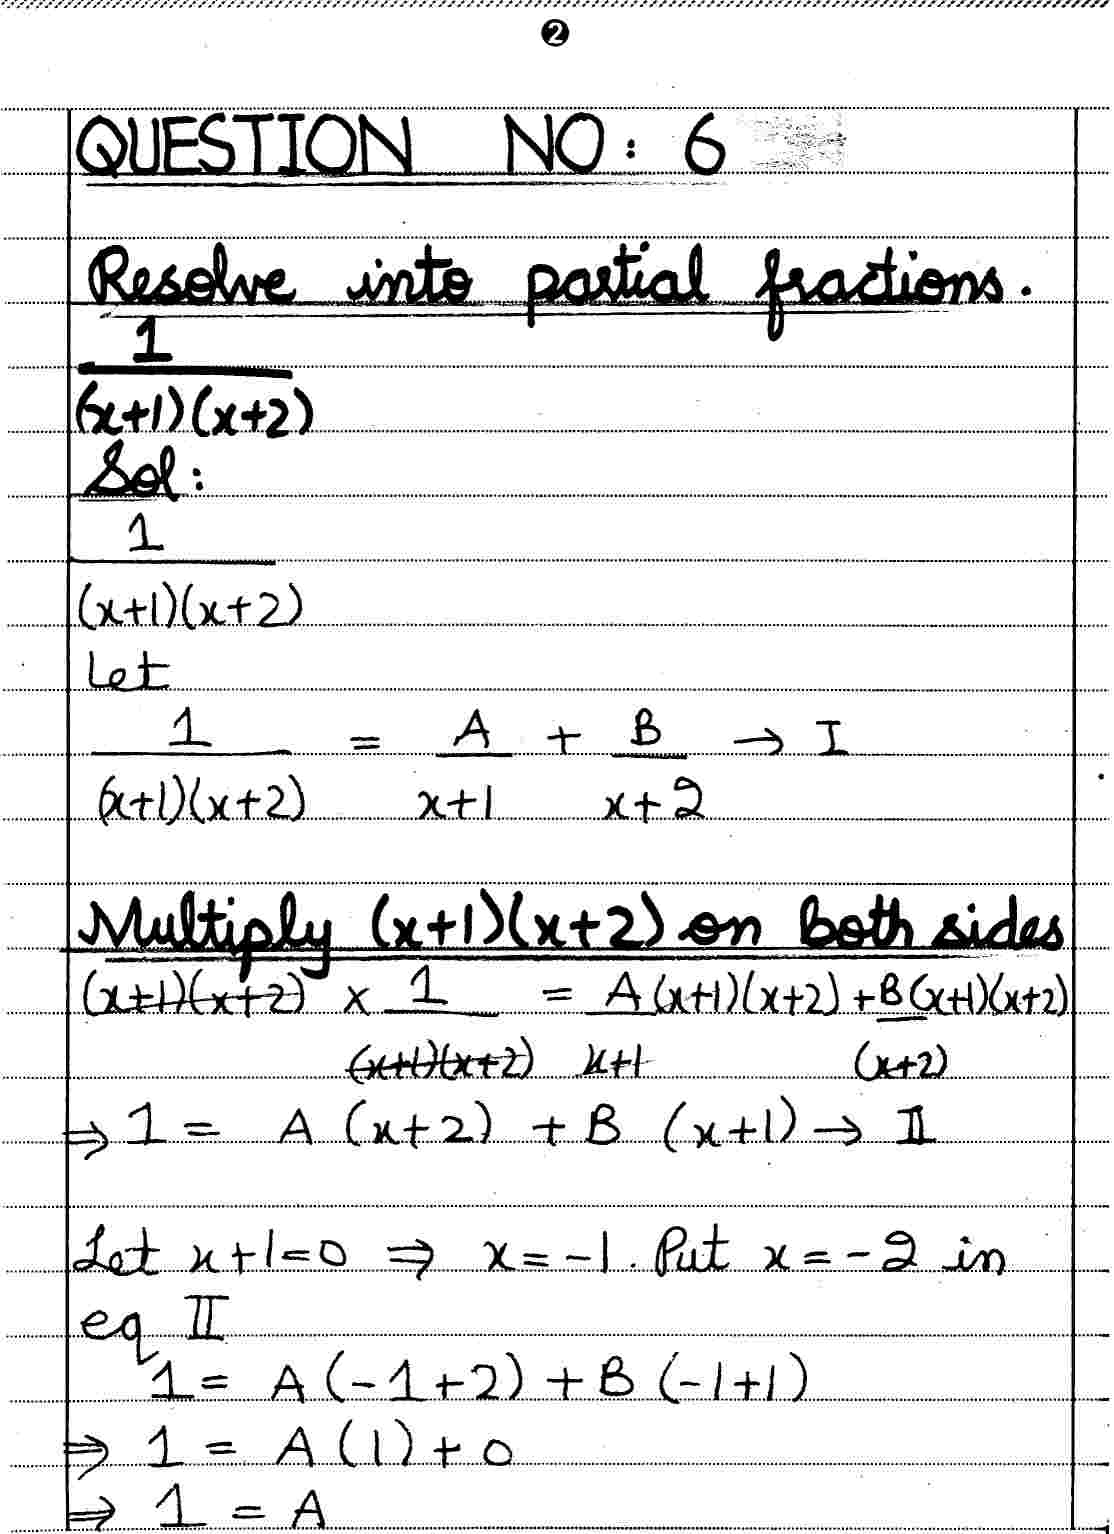 2
QUESTION NO: 6
Resolve into partial fractions.
1
(x+1)(x+2)
Sol:
1
(x+1)(x+2)
Let
1 = A + B → I
(x+1)(x+2) x+1 x+2
Multiply (x+1)(x+2) on both sides
(x+1)(x+2) × 1 = A(x+1)(x+2) + B(x+1)(x+2)
(x+1)(x+2) x+1 (x+2)
⇒ 1 = A (x+2) + B (x+1) → II
Let x+1=0 ⇒ x=-1. Put x=-2 in
eq II
1 = A(-1+2) + B(-1+1)
⇒ 1 = A(1)+0
⇒ 1 = A